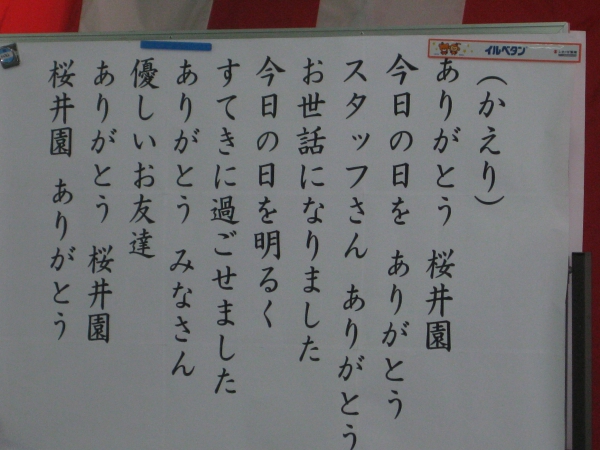 イルペタン
（かえり）
ありがとう 桜井園
今日の日を ありがとう
スタッフさん ありがとう
お世話になりました
今日の日を明るく
すてきに過ごせました
ありがとう みなさん
優しいお友達
ありがとう 桜井園
桜井園 ありがとう